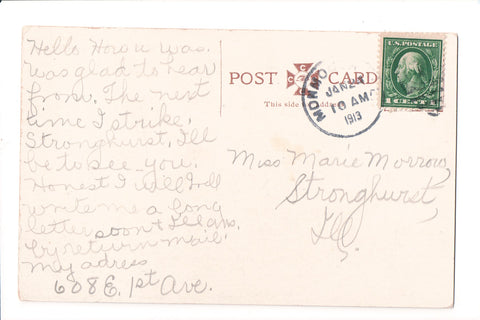 Hello How u was.
was glad to hear
from. The next
time I strike,
Stronghurst, Ill
be to see you.
Honest I will
write me a long
letter soon + Ill ans.
by return mail.
my adress
608 E. 1st Ave.
POST CARD
This side
U.S. POSTAGE
1 CENT 1
MONMO
JAN 2
10 AM
1913
Miss Marie Morrow,
Stronghurst,
Ill.